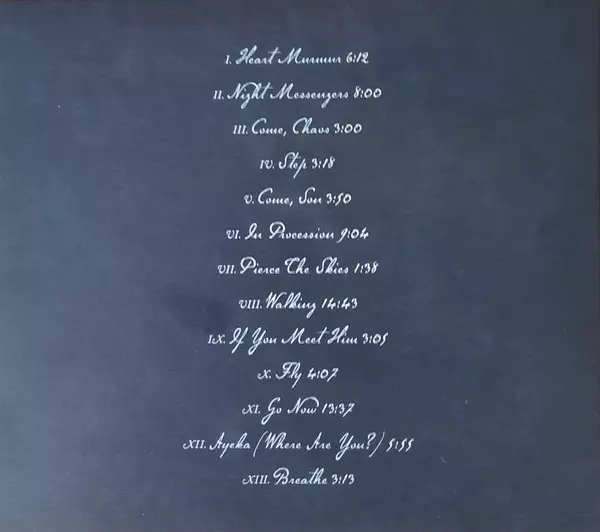 I. Heart Murmur 6:12
II. Night Messengers 8:00
III. Come, Chaos 3:00
IV. Step 3:18
V. Come, Son 3:50
VI. In Procession 9:04
VII. Pierce The Skies 1:38
VIII. Walking 14:43
IX. If You Meet Him 3:05
X. Fly 4:07
XI. Go Now 13:37
XII. Ayeka (Where Are You?) 5:55
XIII. Breathe 3:13